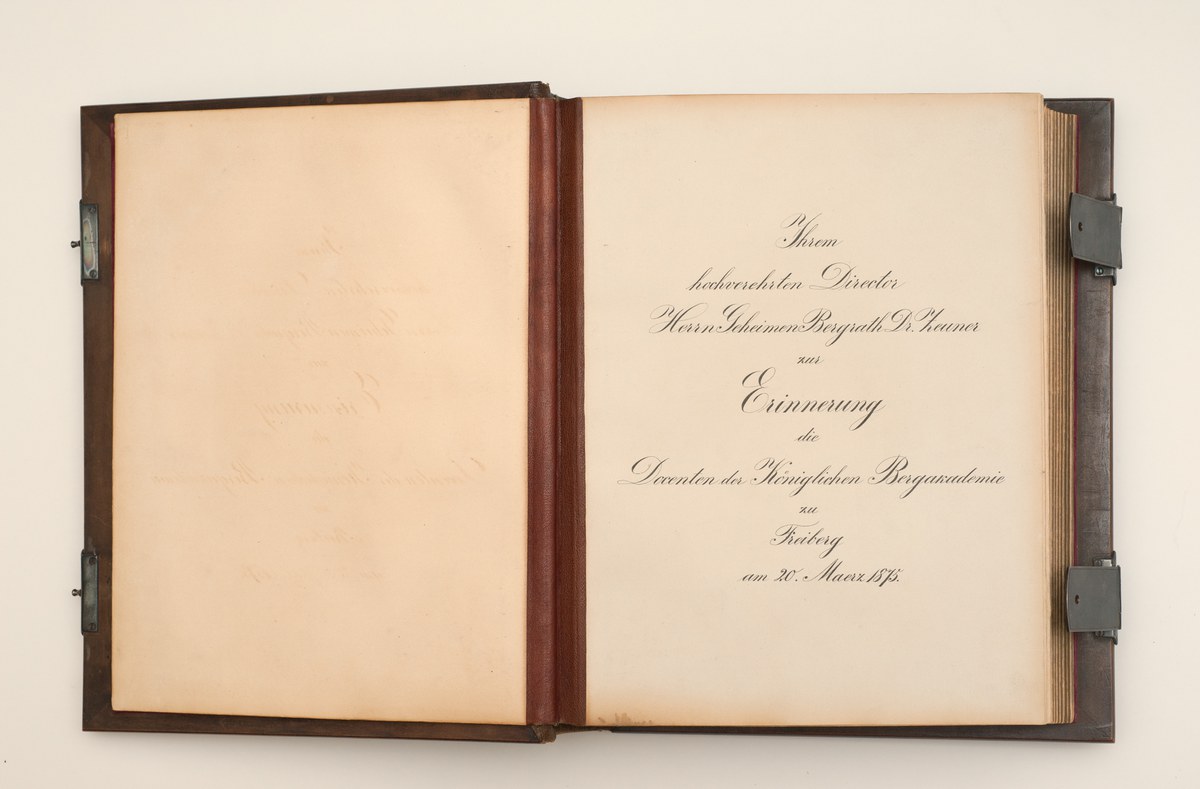 Ihrem
hochverehrten Director
Herrn Geheimen Bergrath Dr. Zeuner
zur
Erinnerung
die
Docenten der Königlichen Bergakademie
zu
Freiberg
am 20. Maerz 1875.